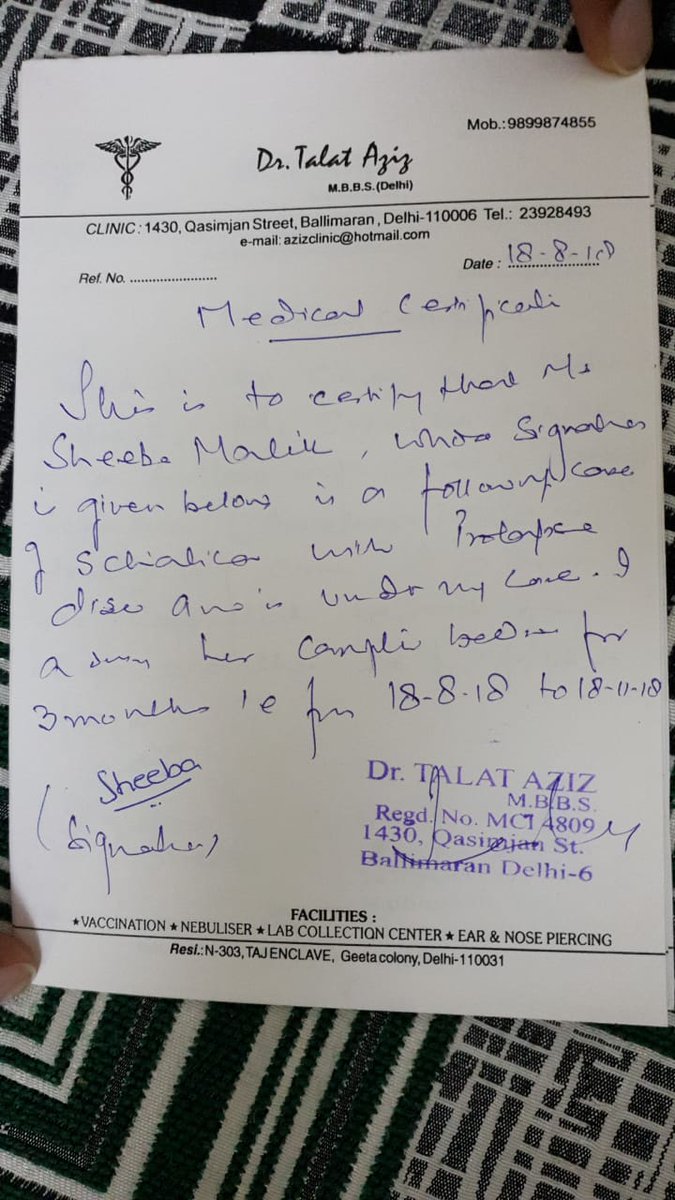 Mob.:9899874855
Dr. Talat Aziz
M.B.B.S.(Delhi)
CLINIC : 1430, Qasimjan Street, Ballimaran , Delhi-110006 Tel.: 23928493
e-mail: azizclinic@hotmail.com
Ref. No. ........................
Date : 18-8-18
Medical Certificate
This is to certify that Ms
Sheeba Malik, whose Signature
is given below is a followup case
of Sciatica with Prolapse
disc and is under my care. I
advise her complete bedrest for
3 months ie from 18-8-18 to 18-11-18
Sheeba
(Signature)
Dr. TALAT AZIZ
M.B.B.S.
Regd. No. MCI 4809
1430, Qasimjan St.
Ballimaran Delhi-6
FACILITIES :
★VACCINATION ★ NEBULISER ★ LAB COLLECTION CENTER ★ EAR & NOSE PIERCING
Resi.: N-303, TAJ ENCLAVE, Geeta colony, Delhi-110031